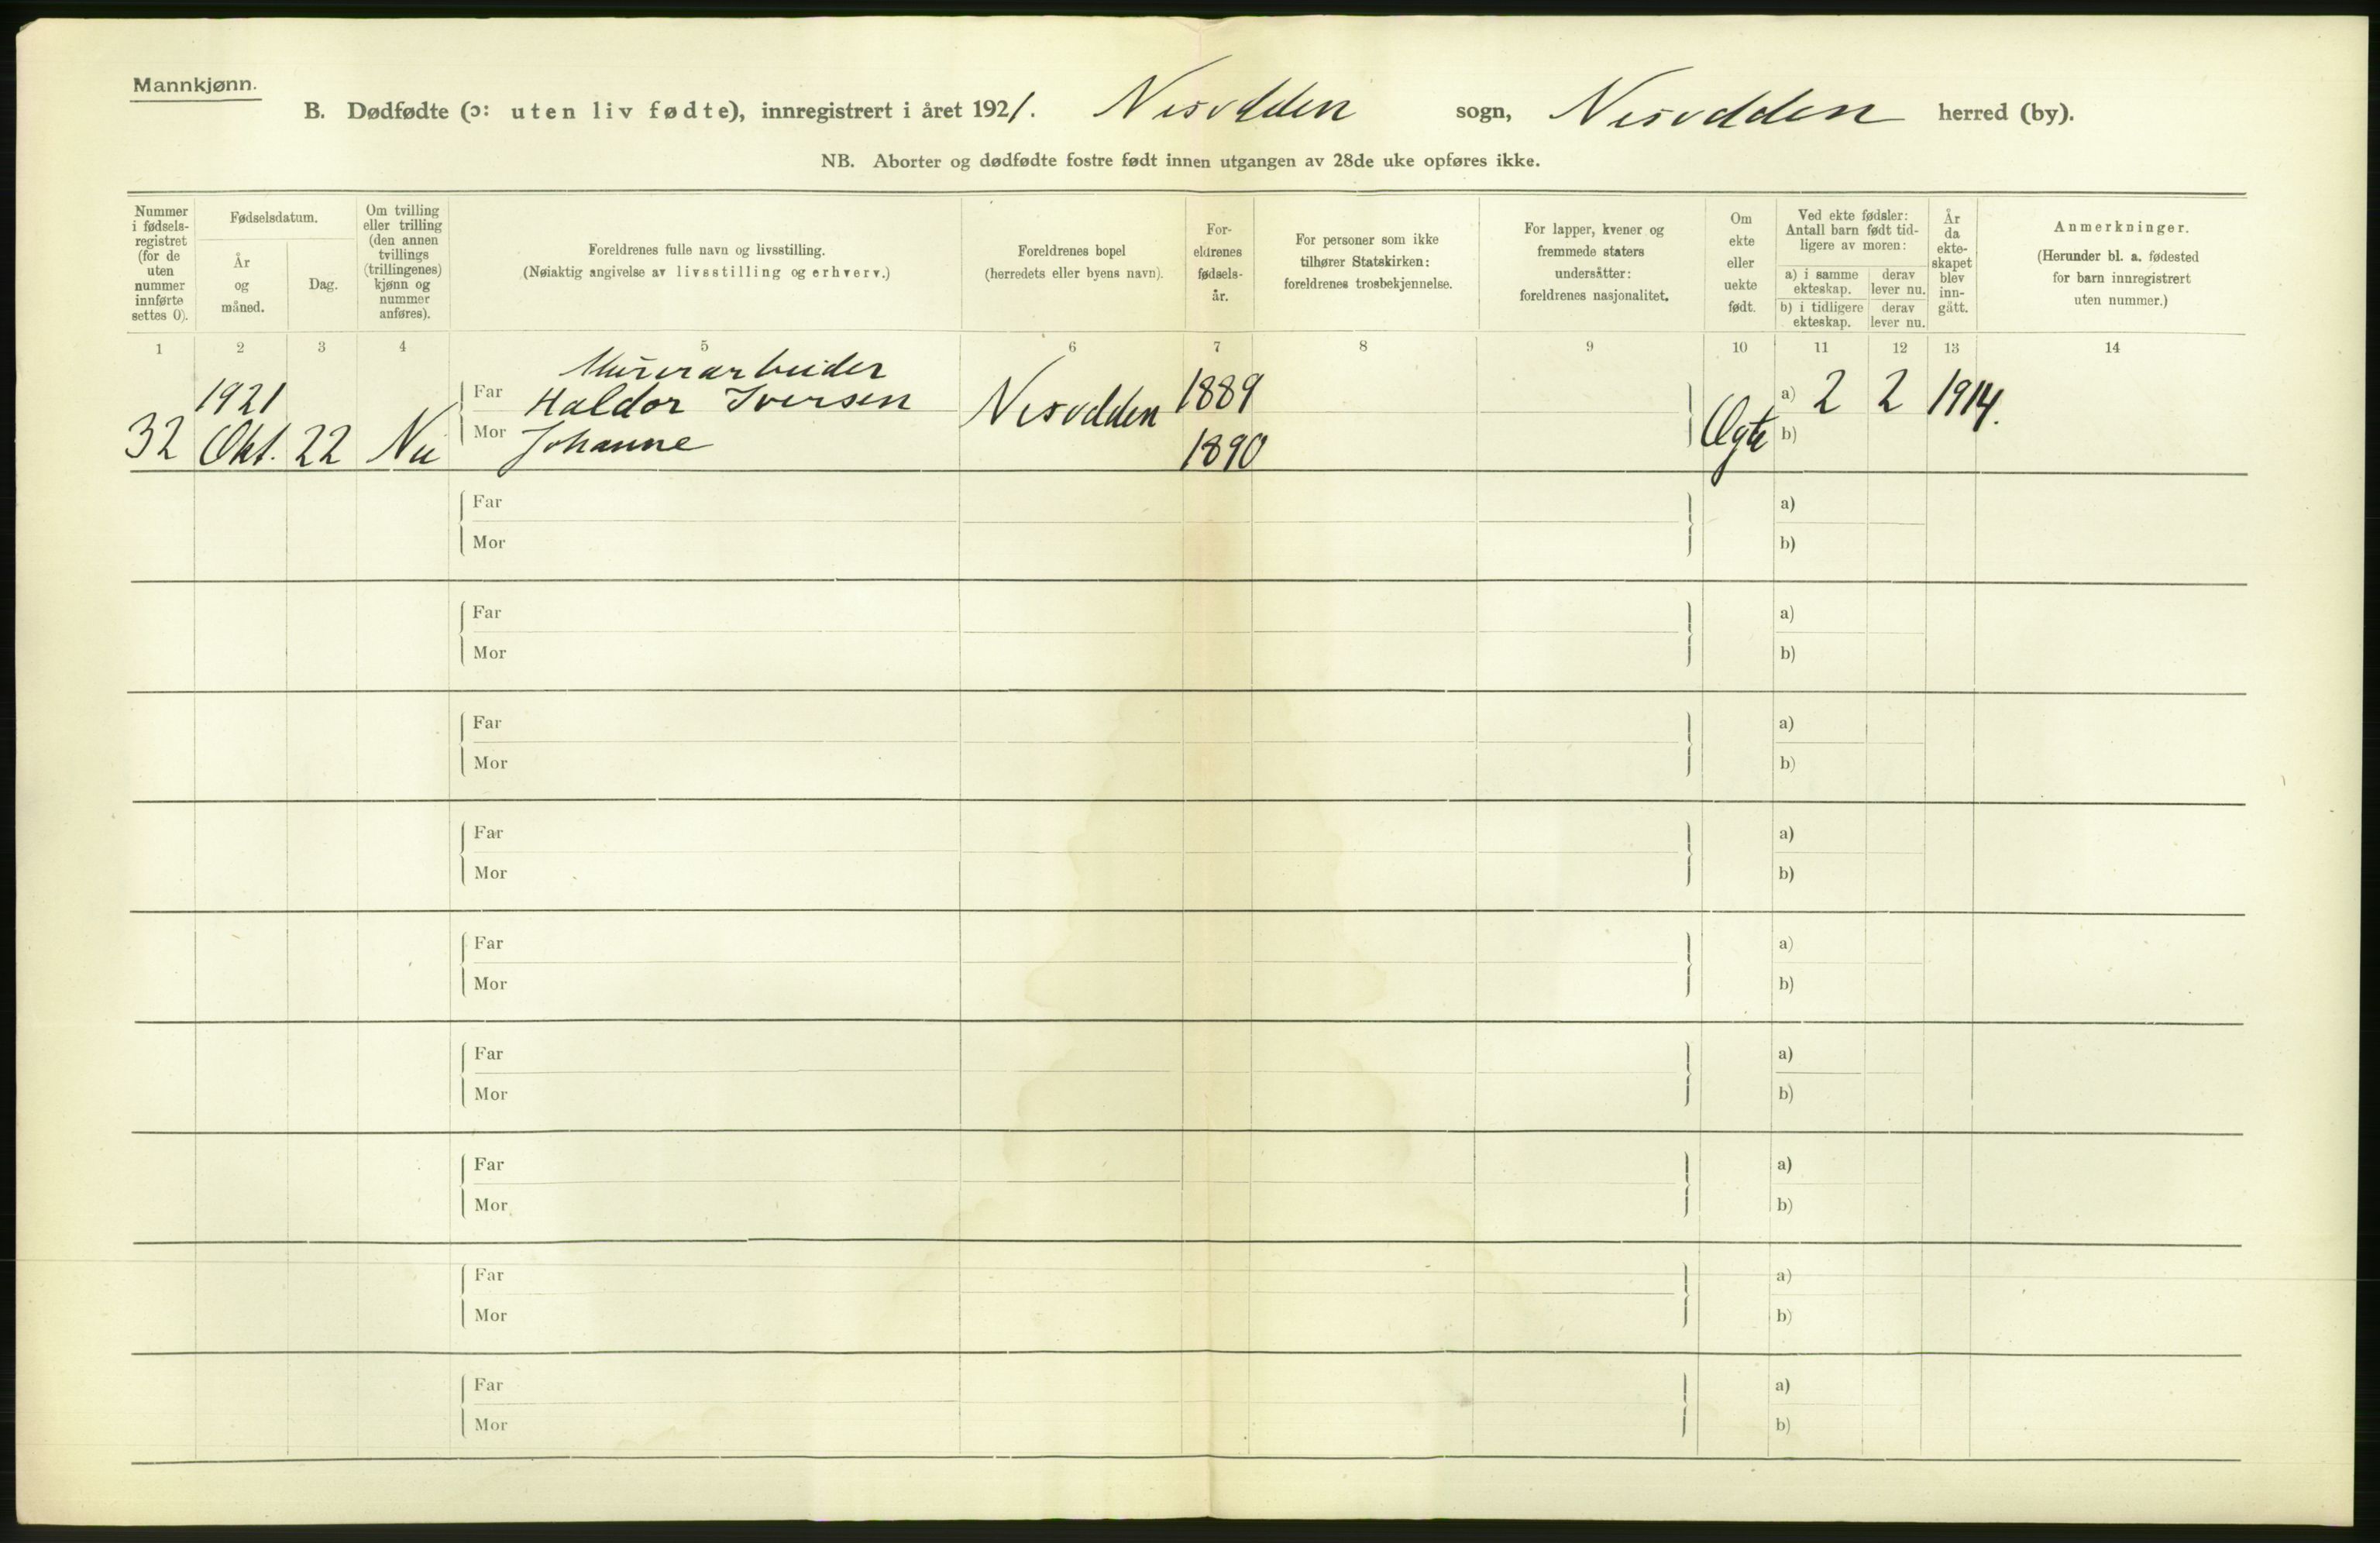 Mannkjønn.
B. Dødfødte (ɔ: uten liv fødte), innregistrert i året 1921. Nesodden sogn, Nesodden herred (by).
NB. Aborter og dødfødte fostre født innen utgangen av 28de uke opføres ikke.
Nummer
i fødsels-
registret
(for de
uten
nummer
innførte
settes 0).
Fødselsdatum.
År
og
måned.
Dag.
Om tvilling
eller trilling
(den annen
tvillings
(trillingenes)
kjønn og
nummer
anføres).
Foreldrenes fulle navn og livsstilling.
(Nøiaktig angivelse av livsstilling og erhverv.)
Foreldrenes bopel
(herredets eller byens navn).
For-
eldrenes
fødsels-
år.
For personer som ikke
tilhører Statskirken:
foreldrenes trosbekjennelse.
For lapper, kvener og
fremmede staters
undersåtter:
foreldrenes nasjonalitet.
Om
ekte
eller
uekte
født.
Ved ekte fødsler:
Antall barn født tid-
ligere av moren:
a) i samme
ekteskap.
derav
lever nu.
b) i tidligere
ekteskap.
derav
lever nu.
År
da
ekte-
skapet
blev
inn-
gått.
Anmerkninger.
(Herunder bl. a. fødested
for barn innregistrert
uten nummer.)
1 2 3 4 5 6 7 8 9 10 11 12 13 14
Murerarbeider
1921 Far Haldor Iversen Nesodden 1889 a) 2 2 1914.
32 Okt. 22 Nei Mor Johanne 1890 Ægte b)
Far a)
Mor b)
Far a)
Mor b)
Far a)
Mor b)
Far a)
Mor b)
Far a)
Mor b)
Far a)
Mor b)
Far a)
Mor b)
Far a)
Mor b)
Far a)
Mor b)